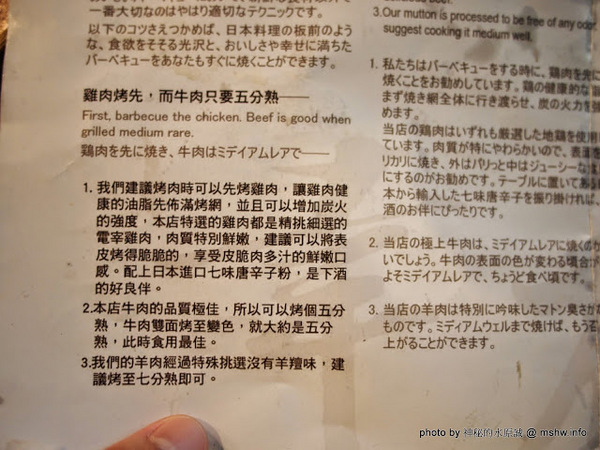 一番大切なのはやはり適切なテクニックです。
以下のコツさえつかめば、日本料理の板前のよう
な、食欲をそそる光沢と、おいしさや幸せに満ちた
バーベキューをあなたもすぐに焼くことができます。
雞肉烤先，而牛肉只要五分熟——
First, barbecue the chicken. Beef is good when
grilled medium rare.
鶏肉を先に焼き、牛肉はミデイアムレアで——
1. 我們建議烤肉時可以先烤雞肉，讓雞肉健
康的油脂先佈滿烤網，並且可以增加炭火
的強度，本店特選的雞肉都是精挑細選的
電宰雞肉，肉質特別鮮嫩，建議可以將表
皮烤得脆脆的，享受皮脆肉多汁的鮮嫩口
感。配上日本進口七味唐辛子粉，是下酒
的好良伴。
2.本店牛肉的品質極佳，所以可以烤個五分
熟，牛肉雙面烤至變色，就大約是五分
熟，此時食用最佳。
3.我們的羊肉經過特殊挑選沒有羊羶味，建
議烤至七分熟即可。
3.Our mutton is processed to be free of any odor
suggest cooking it medium well.
1. 私たちはバーベキューをする時に、鶏肉を先に
焼くことをお勧めしています。鶏の健康的な
まず焼き網全体に行き渡らせ、炭の火力を強
めます。
当店の鶏肉はいずれも厳選した地鶏を使用
ています。肉質が特にやわらかいので、表面を
リカリに焼き、外はパリっと中はジューシーな
にするのがお勧めです。テーブルに置いてある
本から輸入した七味唐辛子を振り掛ければ、
酒のお伴にぴったりです。
2. 当店の極上牛肉は、ミデイアムレアに焼くのが
いでしょう。牛肉の表面の色が変わる頃合
よそミデイアムレアで、ちょうど食べ頃です。
3. 当店の羊肉は特別に吟味したマトン臭さが
ものです。ミディアムウェルまで焼けば、もう
上がることができます。
photo by 神秘的水原誠 @ mshw.info